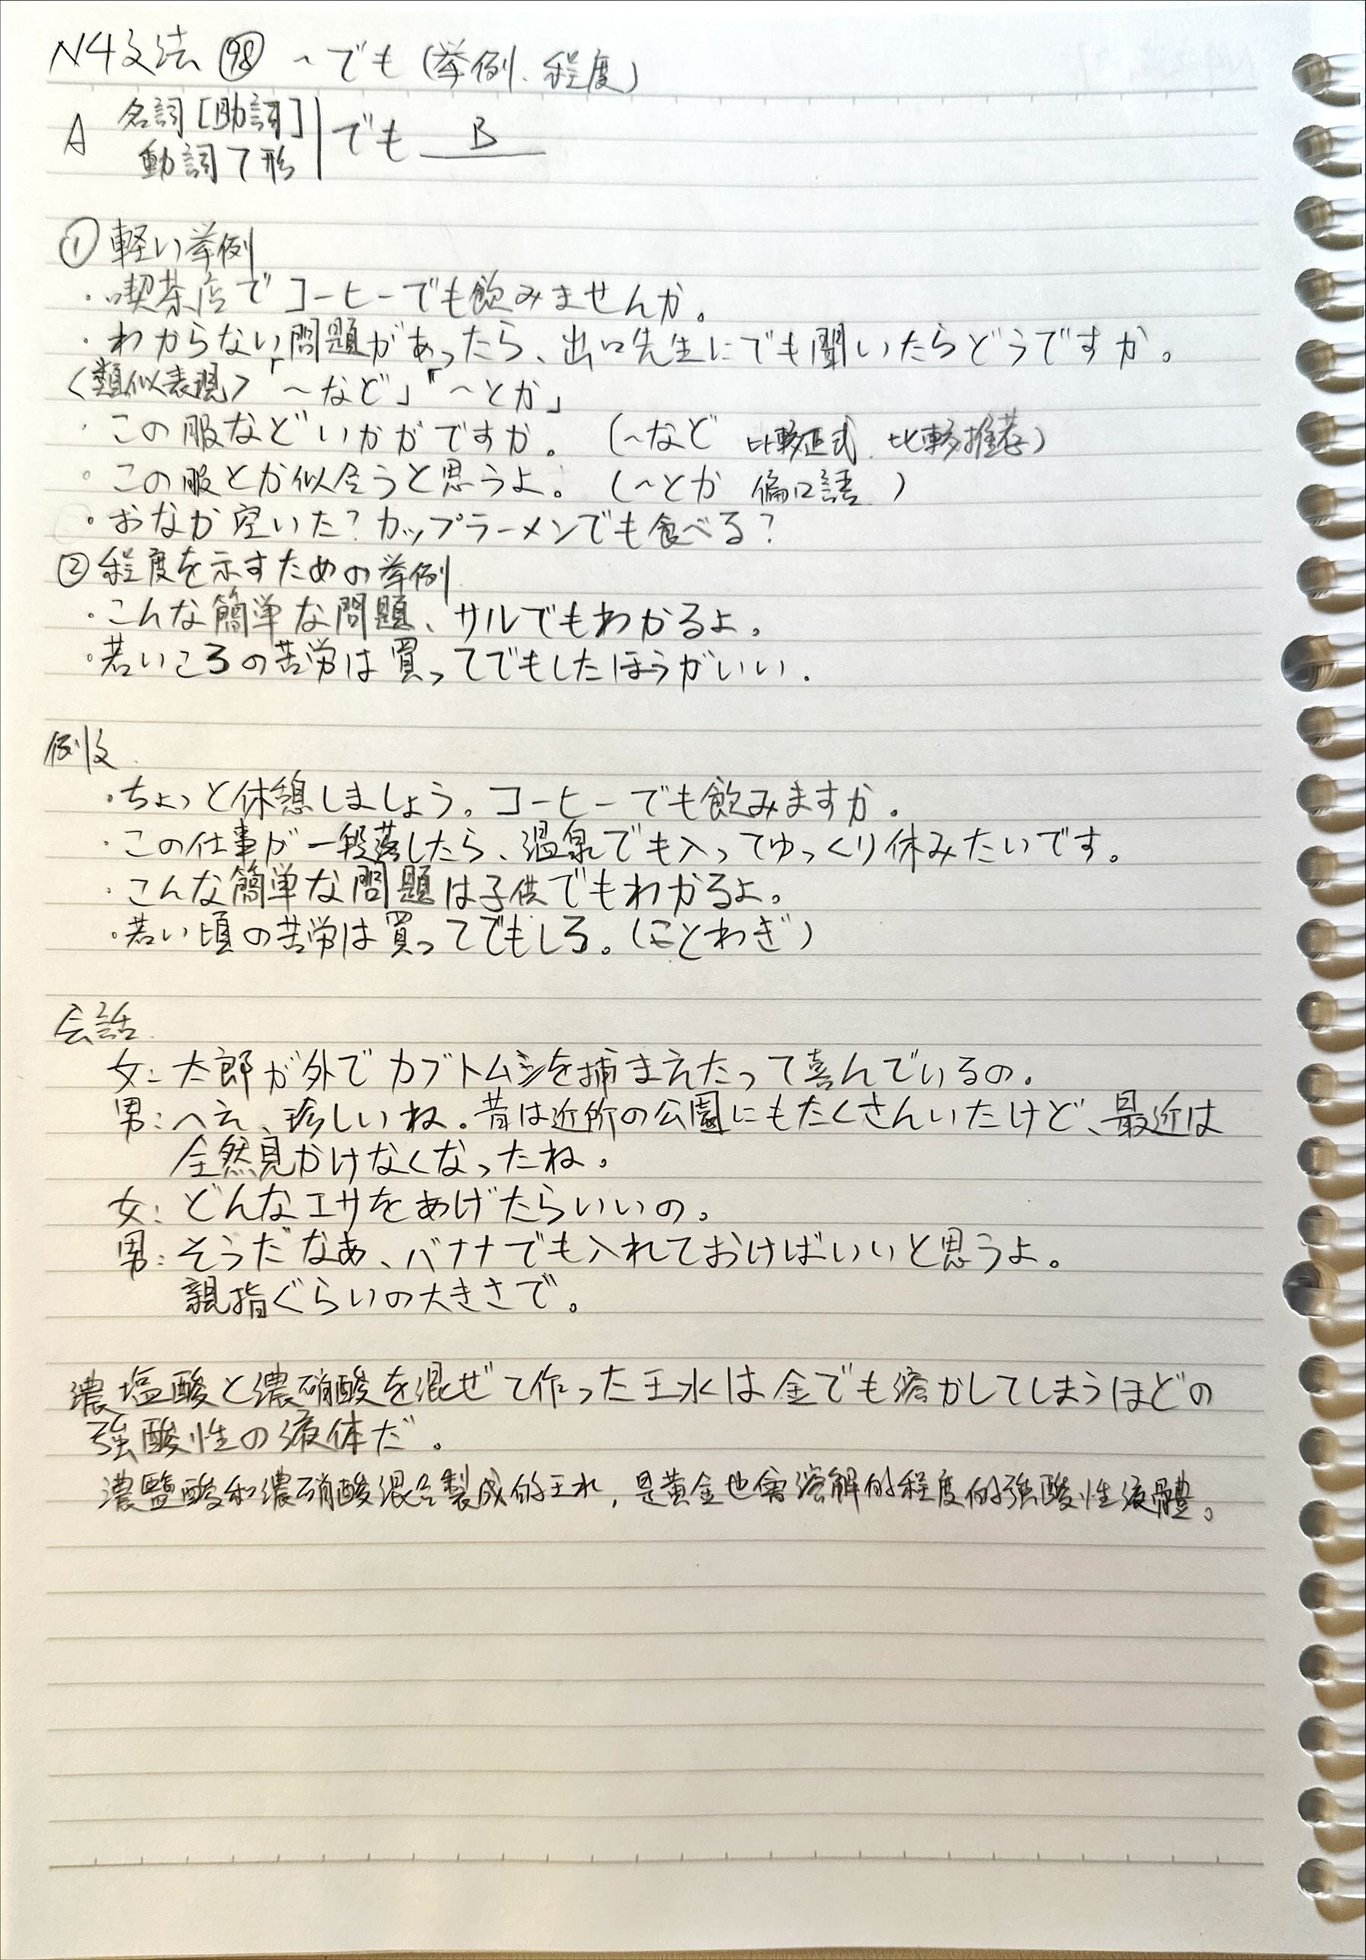 N4文法 ㊽ ～でも (挙例、程度)
A 名詞[助詞] でも B
動詞て形
① 軽い挙例
・喫茶店でコーヒーでも飲みませんか。
・わからない問題があったら、出口先生にでも聞いたらどうですか。
<類似表現>「～など」「～とか」
・この服などいかがですか。 (～など 比較正式、比較推荐)
・この服とか似合うと思うよ。 (～とか 偏口語)
・おなか空いた？カップラーメンでも食べる？
② 程度を示すための挙例
・こんな簡単な問題、サルでもわかるよ。
・若いころの苦労は買ってでもしたほうがいい.
例文
・ちょっと休憩しましょう。コーヒーでも飲みますか。
・この仕事が一段落したら、温泉でも入ってゆっくり休みたいです。
・こんな簡単な問題は子供でもわかるよ。
・若い頃の苦労は買ってでもしろ。(ことわざ)
会話
女：太郎が外でカブトムシを捕まえたって喜んでいるの.
男：へえ、珍しいね。昔は近所の公園にもたくさんいたけど、最近は
全然見かけなくなったね。
女：どんなエサをあげたらいいの。
男：そうだなあ、バナナでも入れておけばいいと思うよ。
親指ぐらいの大きさで。
濃塩酸と濃硝酸を混ぜて作った王水は金でも溶かしてしまうほどの
強酸性の液体だ。
濃鹽酸和濃硝酸混合製成的王水，是黃金也會溶解的程度的強酸性液體。